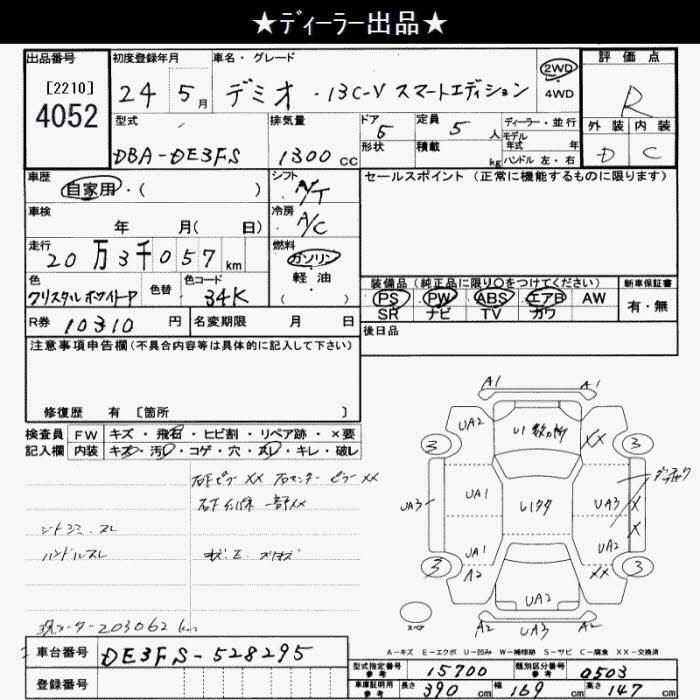 ★ディーラー出品★
出品番号
[2210]
4052
初度登録年月
24 5月
車名・グレード
デミオ ・13C-V スマートエディション
2WD
4WD
評価点
R
外装 内装
D C
型式
DBA-DE3FS
排気量
1300 CC
ドア
5
定員
5 人
ディーラー・並行
モデル
年式 年
形状
積載
kg
ハンドル 左・右
車歴
自家用・( )
シフト
A/T
セールスポイント (正常に機能するものに限ります)
車検
年 月( 日)
冷房
A/C
走行
20万3千057 km
燃料
ガソリン
軽油
( )
色
クリスタルホワイトP
色替
色コード
34K
装備品 (純正品に限り○をつけてください)
PS PW ABS エアB AW
SR ナビ TV カワ
新車保証書
有・無
R券 10310 円
名変期限 月 日
後日品
注意事項申告欄(不具合内容等は具体的に記入して下さい)
修復歴 有 [箇所 ]
検査員 FW キズ・飛石・ヒビ割・リペア跡・×要
記入欄 内装 キズ・汚レ・コゲ・穴・スレ・キレ・破レ
右Fピラー XX 右センターピラー XX
右Fインパネ 一部XX
シートシミ・スレ
ハンドルスレ
現メーター203062km
A1 A1
UA2
U1数ヵ所
XX
3 3
UA3
UA1
UA3
X
X
UA1
UA2
3 3
A2
XX
UA2
A2 UA3 A2
A-キズ E-エクボ U-凹み W-補修跡 S-サビ C-腐食 XX-交換済
車台番号
DE3FS-528295
登録番号
型式指定番号
参考
15700
類別区分番号
参考
0503
車庫証明用
参考
長さ 390 cm
幅 169 cm
高さ 147 cm